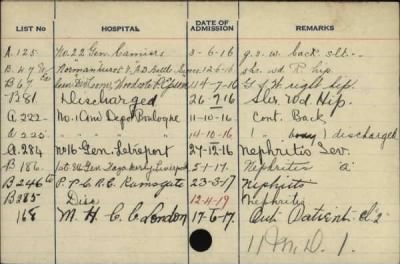 LIST No HOSPITAL DATE OF ADMISSION REMARKS
A. 125. No. 22 Gen. Camiers 3-6-16 g.s.w. back slt.
B. 47 "Normanhurst" V.A.D. Battle 12-6-16 she. wd. R. hip.
B 67 Woodcote P. Epsom 14-7-16 G.S.W. right hip.
B 81 Discharged 26-7-16 Sur. Wd. Hip.
A 222 No. 1 Con. Depot Boulogne 11-10-16 Cont. Back
A 225 " " " 14-10-16 " " discharged
A. 284 No 16 Gen. Letreport 27-12-16 Nephritis Sev.
B 186. 1st W. Gen. Fazakerley Liverpool 5-1-17. Nephrites "a"
B 246 P.P.C.R.C. Ramsgate 23-3-17 Nephritis
B 285 Disc 12-4-19 Nephritis
168 M. H. C. C. London 17-6-17. Out Patient cl 2